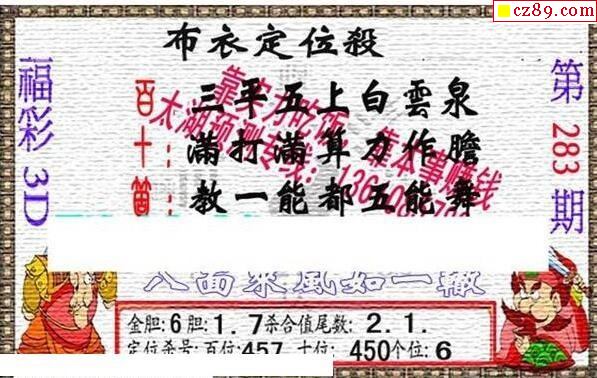 cz89.com
布衣定位殺
福彩3D
第283期
百: 三平五上白雲泉
十: 滿打滿算力作膽
箇: 教一能都五能舞
八面来風如一轍
金胆:6胆:1.7杀合值尾数:2.1.
定位杀号:百位:457 十位:450个位:6